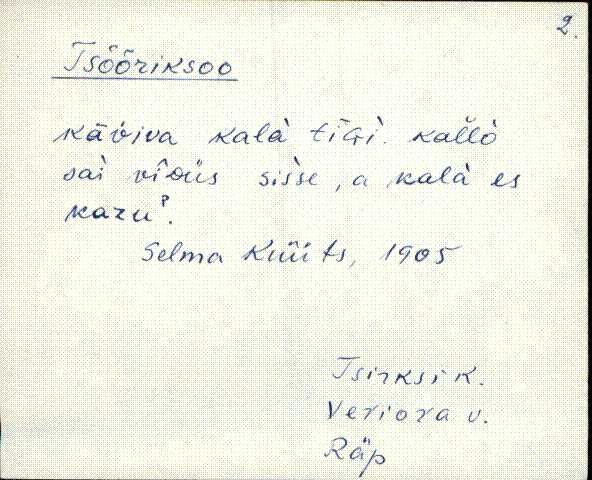 2.
Tsõõriksoo
käviva kalà tīGì. kallò
sai vîDüs sisse, a kalà es
kazuˀ.
Selma Küüts, 1905
Tsirksi k.
Veriora v.
Räp